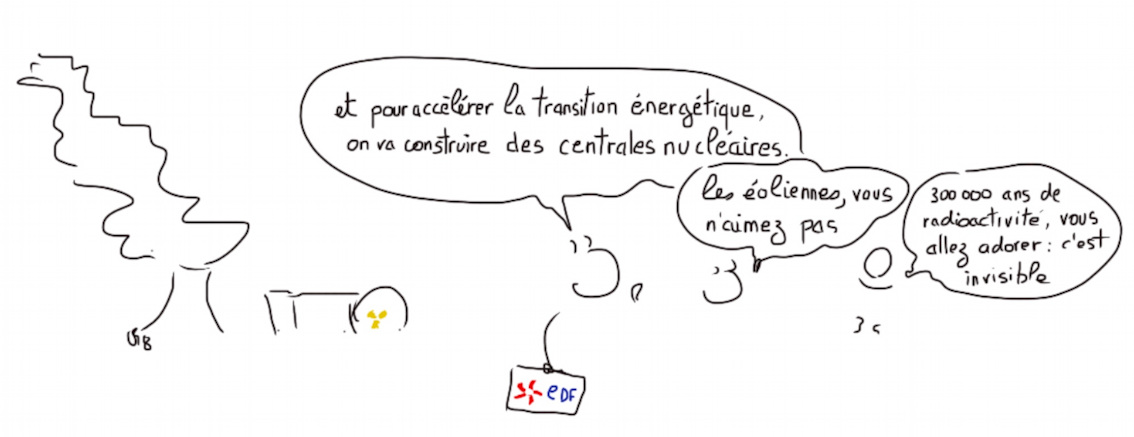 et pour accélérer la transition énergétique,
on va construire des centrales nucléaires.
les éoliennes, vous
n'aimez pas
300 000 ans de
radioactivité, vous
allez adorer : c'est
invisible
eDF